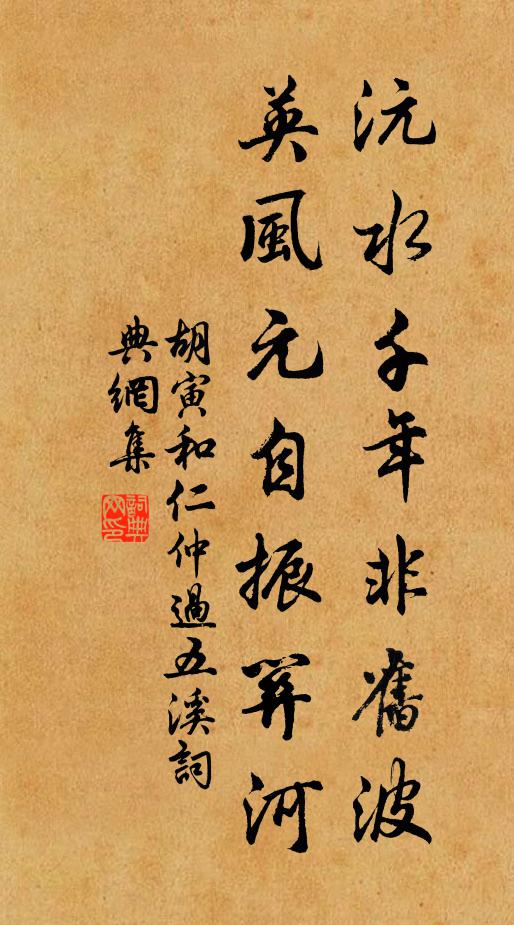 沅水千年非舊波
英風元自振羿河
胡寅和仁仲過五溪詞
典網集
詞典網印